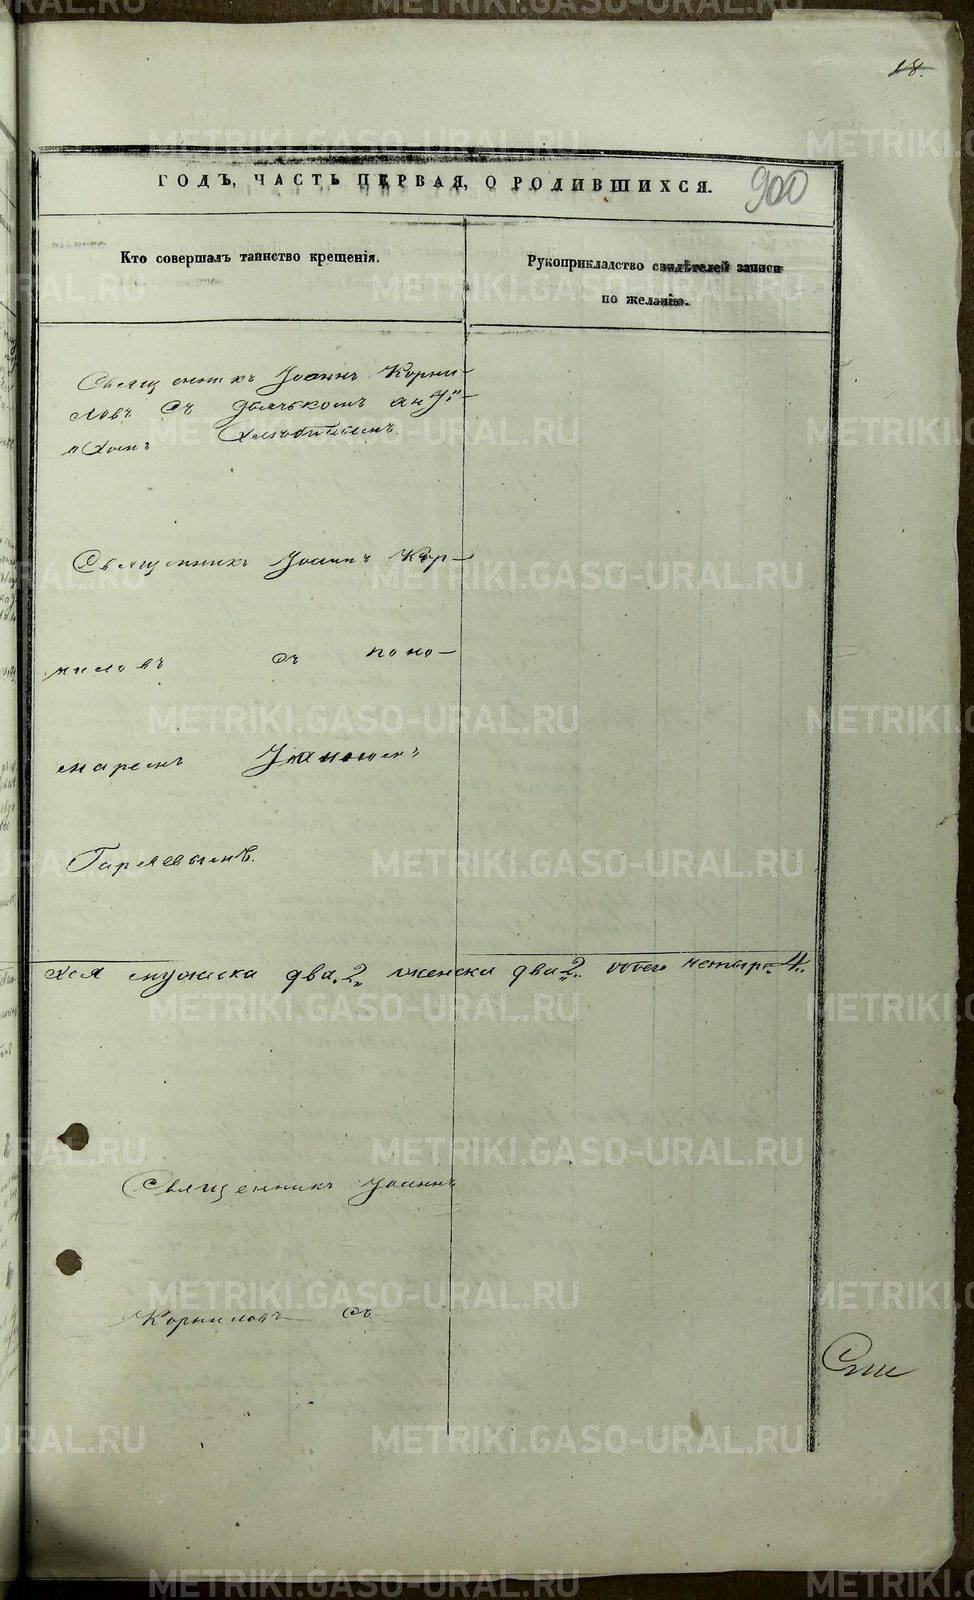 18.
ГОДЪ, ЧАСТЬ ПЕРВАЯ, О РОДИВШИХСЯ.
900
Кто совершалъ таинство крещенія.
Рукоприкладство свидѣтелей записи
по желанію.
Священникъ Іоаннъ Корни-
ловъ съ дьячкомъ
Священникъ Іоаннъ Кор-
ниловъ съ поно-
маремъ
Гаряевымъ.
хся мужеска два 2 женска два 2 обоего четыре 4
Священникъ Іоаннъ
Корниловъ съ
METRIKI.GASO-URAL.RU